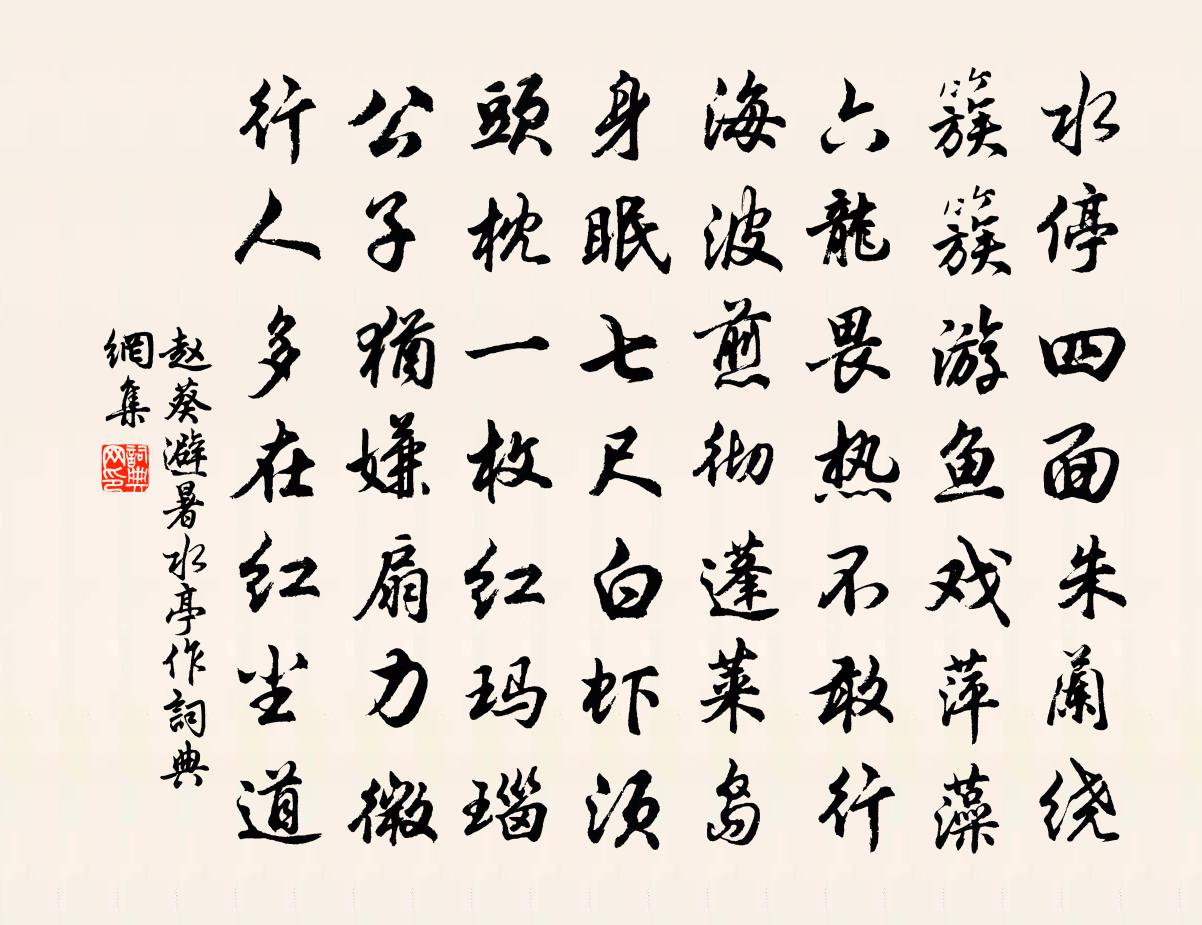 水停四面朱蘭绕
簇簇游鱼戏萍藻
六龍畏热不敢行
海波煎彻蓬莱岛
身眠七尺白虾须
頭枕一枚红玛瑙
公子猶嫌扇力微
行人多在红尘道
赵葵避暑水亭作詞典
網集
詞典
网印